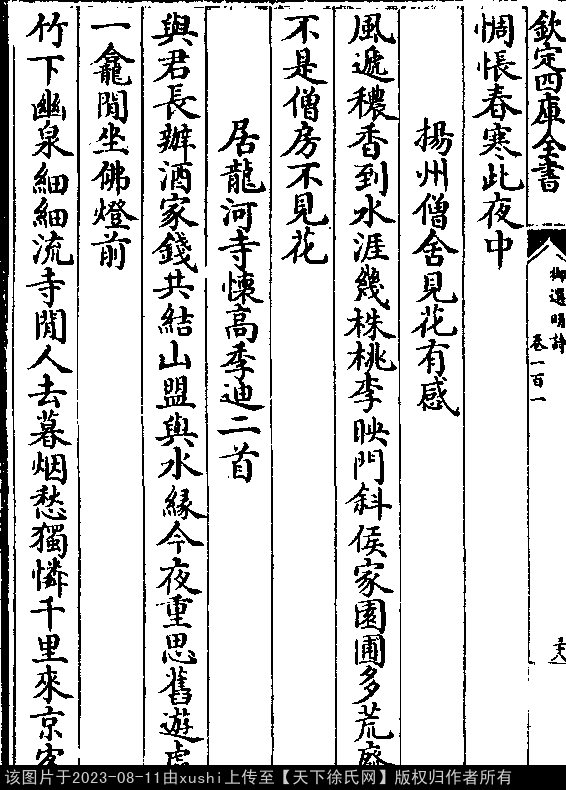 欽定四庫全書
御選明詩
卷一百一
惆悵春寒此夜中
揚州僧舍見花有感
風遞穠香到水涯幾株桃李映門斜侯家園圃多荒廢
不是僧房不見花
居龍河寺懷高季迪二首
與君長辦酒家錢共結山盟與水緣今夜重思舊遊處
一龕閒坐佛燈前
竹下幽泉細細流寺閒人去暮烟愁獨憐千里來京客
该图片于2023-08-11由xushi上传至【天下徐氏网】版权归作者所有